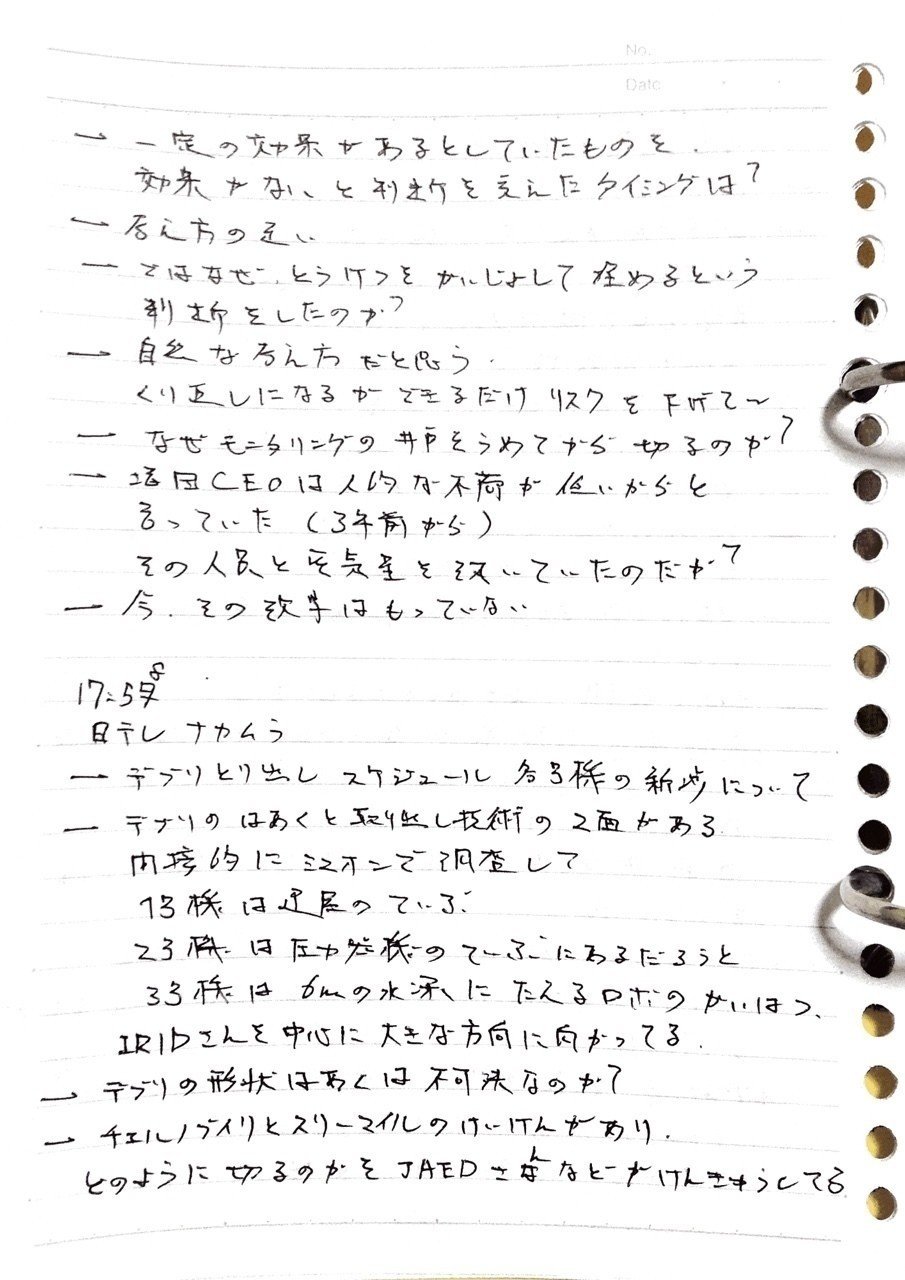 No.
Date
→ 一定の効果があるとしていたものを、
効果がない、と判断を変えたタイミングは?
→ 考え方の違い
→ ではなぜ、とうけつをかいじょして埋めるという
判断をしたのか?
→ 自然な考え方だと思う.
くり返しになるができるだけリスクを下げて〜
→ なぜモニタリングの井戸をうめてから切るのか?
→ 増田CEOは人的な負荷が低いからと
言っていた(3年前から)
その人員と電気量を次いていたのだが?
→ 今、その数字はもっていない
17:58
日テレ ナカムラ
→ デブリとり出し スケジュール 各号機の新渉について
→ デブリのはあくと取り出し技術の2面がある
間接的にミュオンで調査して
1号機は建屋のていぶ
2号機は圧力容機のていぶにあるだろうと
3号機は6mの水深にたえるロボのかいはつ、
IRIDさんを中心に大きな方向に向かってる.
→ デブリの形状はあくは不可決なのか?
→ チェルノブイリとスリーマイルのけいけんがあり、
とのように切るのかをJAEDさんなどがけんきゅうしてる